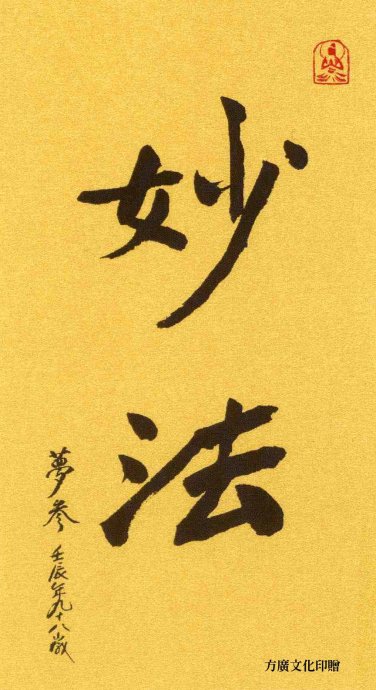 妙法
夢参 壬辰年九十八歲
方廣文化印贈